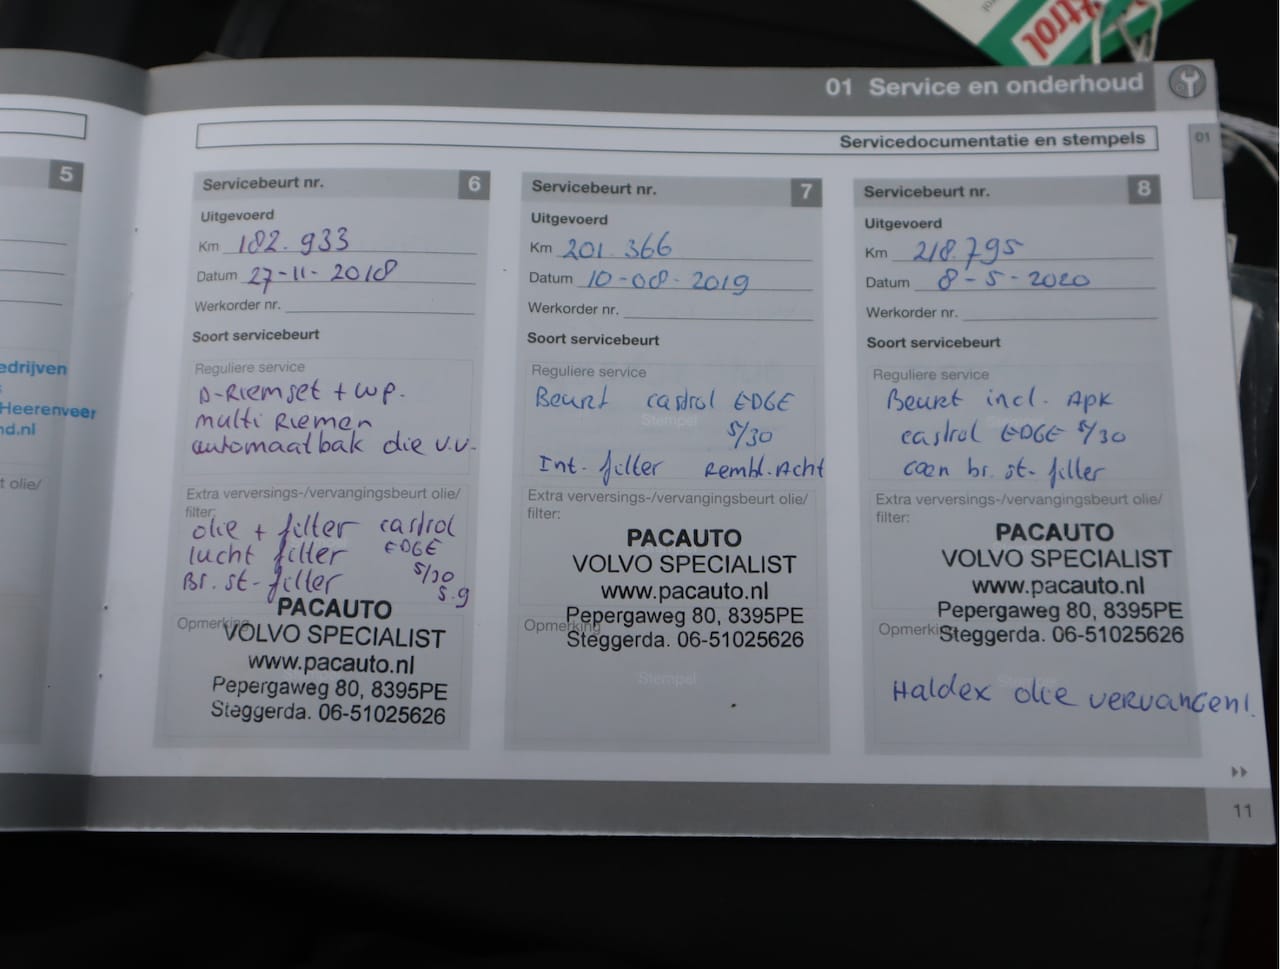 trol
01 Service en onderhoud
Servicedocumentatie en stempels
01
5
edrijven
Heerenveen
nd.nl
t olie/
Servicebeurt nr. 6
Uitgevoerd
Km 182.933
Datum 27-11-2018
Werkorder nr.
Soort servicebeurt
Reguliere service
D-Riemset + WP.
multi Riemen
automaatbak olie v.v.
Extra verversings-/vervangingsbeurt olie/
filter:
olie + filter castrol
lucht filter EDGE
Br. st-filter 5/30
5.9
PACAUTO
Opmerking
VOLVO SPECIALIST
www.pacauto.nl
Pepergaweg 80, 8395PE
Steggerda. 06-51025626
Servicebeurt nr. 7
Uitgevoerd
Km 201.366
Datum 10-08-2019
Werkorder nr.
Soort servicebeurt
Reguliere service
Beurt castrol EDGE
Stempel
5/30
Int. filter Rembl. Acht
Extra verversings-/vervangingsbeurt olie/
filter:
PACAUTO
VOLVO SPECIALIST
www.pacauto.nl
Pepergaweg 80, 8395PE
Opmerking
Steggerda. 06-51025626
Stempel
Servicebeurt nr. 8
Uitgevoerd
Km 218.795
Datum 8-5-2020
Werkorder nr.
Soort servicebeurt
Reguliere service
Beurt incl. APK
castrol EDGE 5/30
geen br. st-filter
Extra verversings-/vervangingsbeurt olie/
filter:
PACAUTO
VOLVO SPECIALIST
www.pacauto.nl
Pepergaweg 80, 8395PE
Opmerking
Steggerda. 06-51025626
Haldex olie vervangen!
11